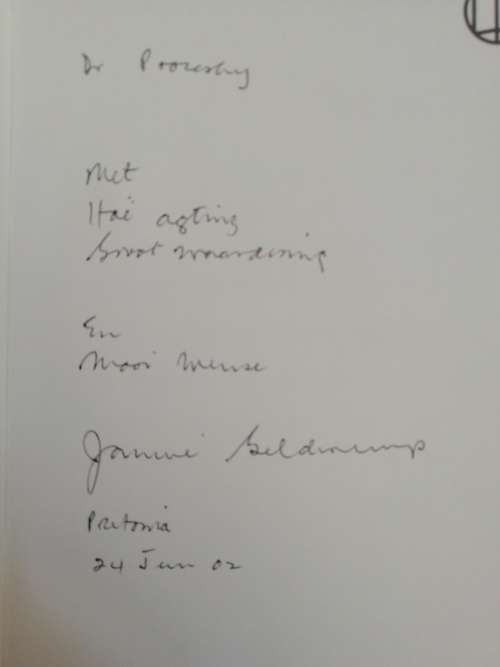 Dr Proozesky
Met
Hoë agting
Groot waardering
En
Mooi wense
Jannie Geldenhuys
Pretoria
24 Jun 02